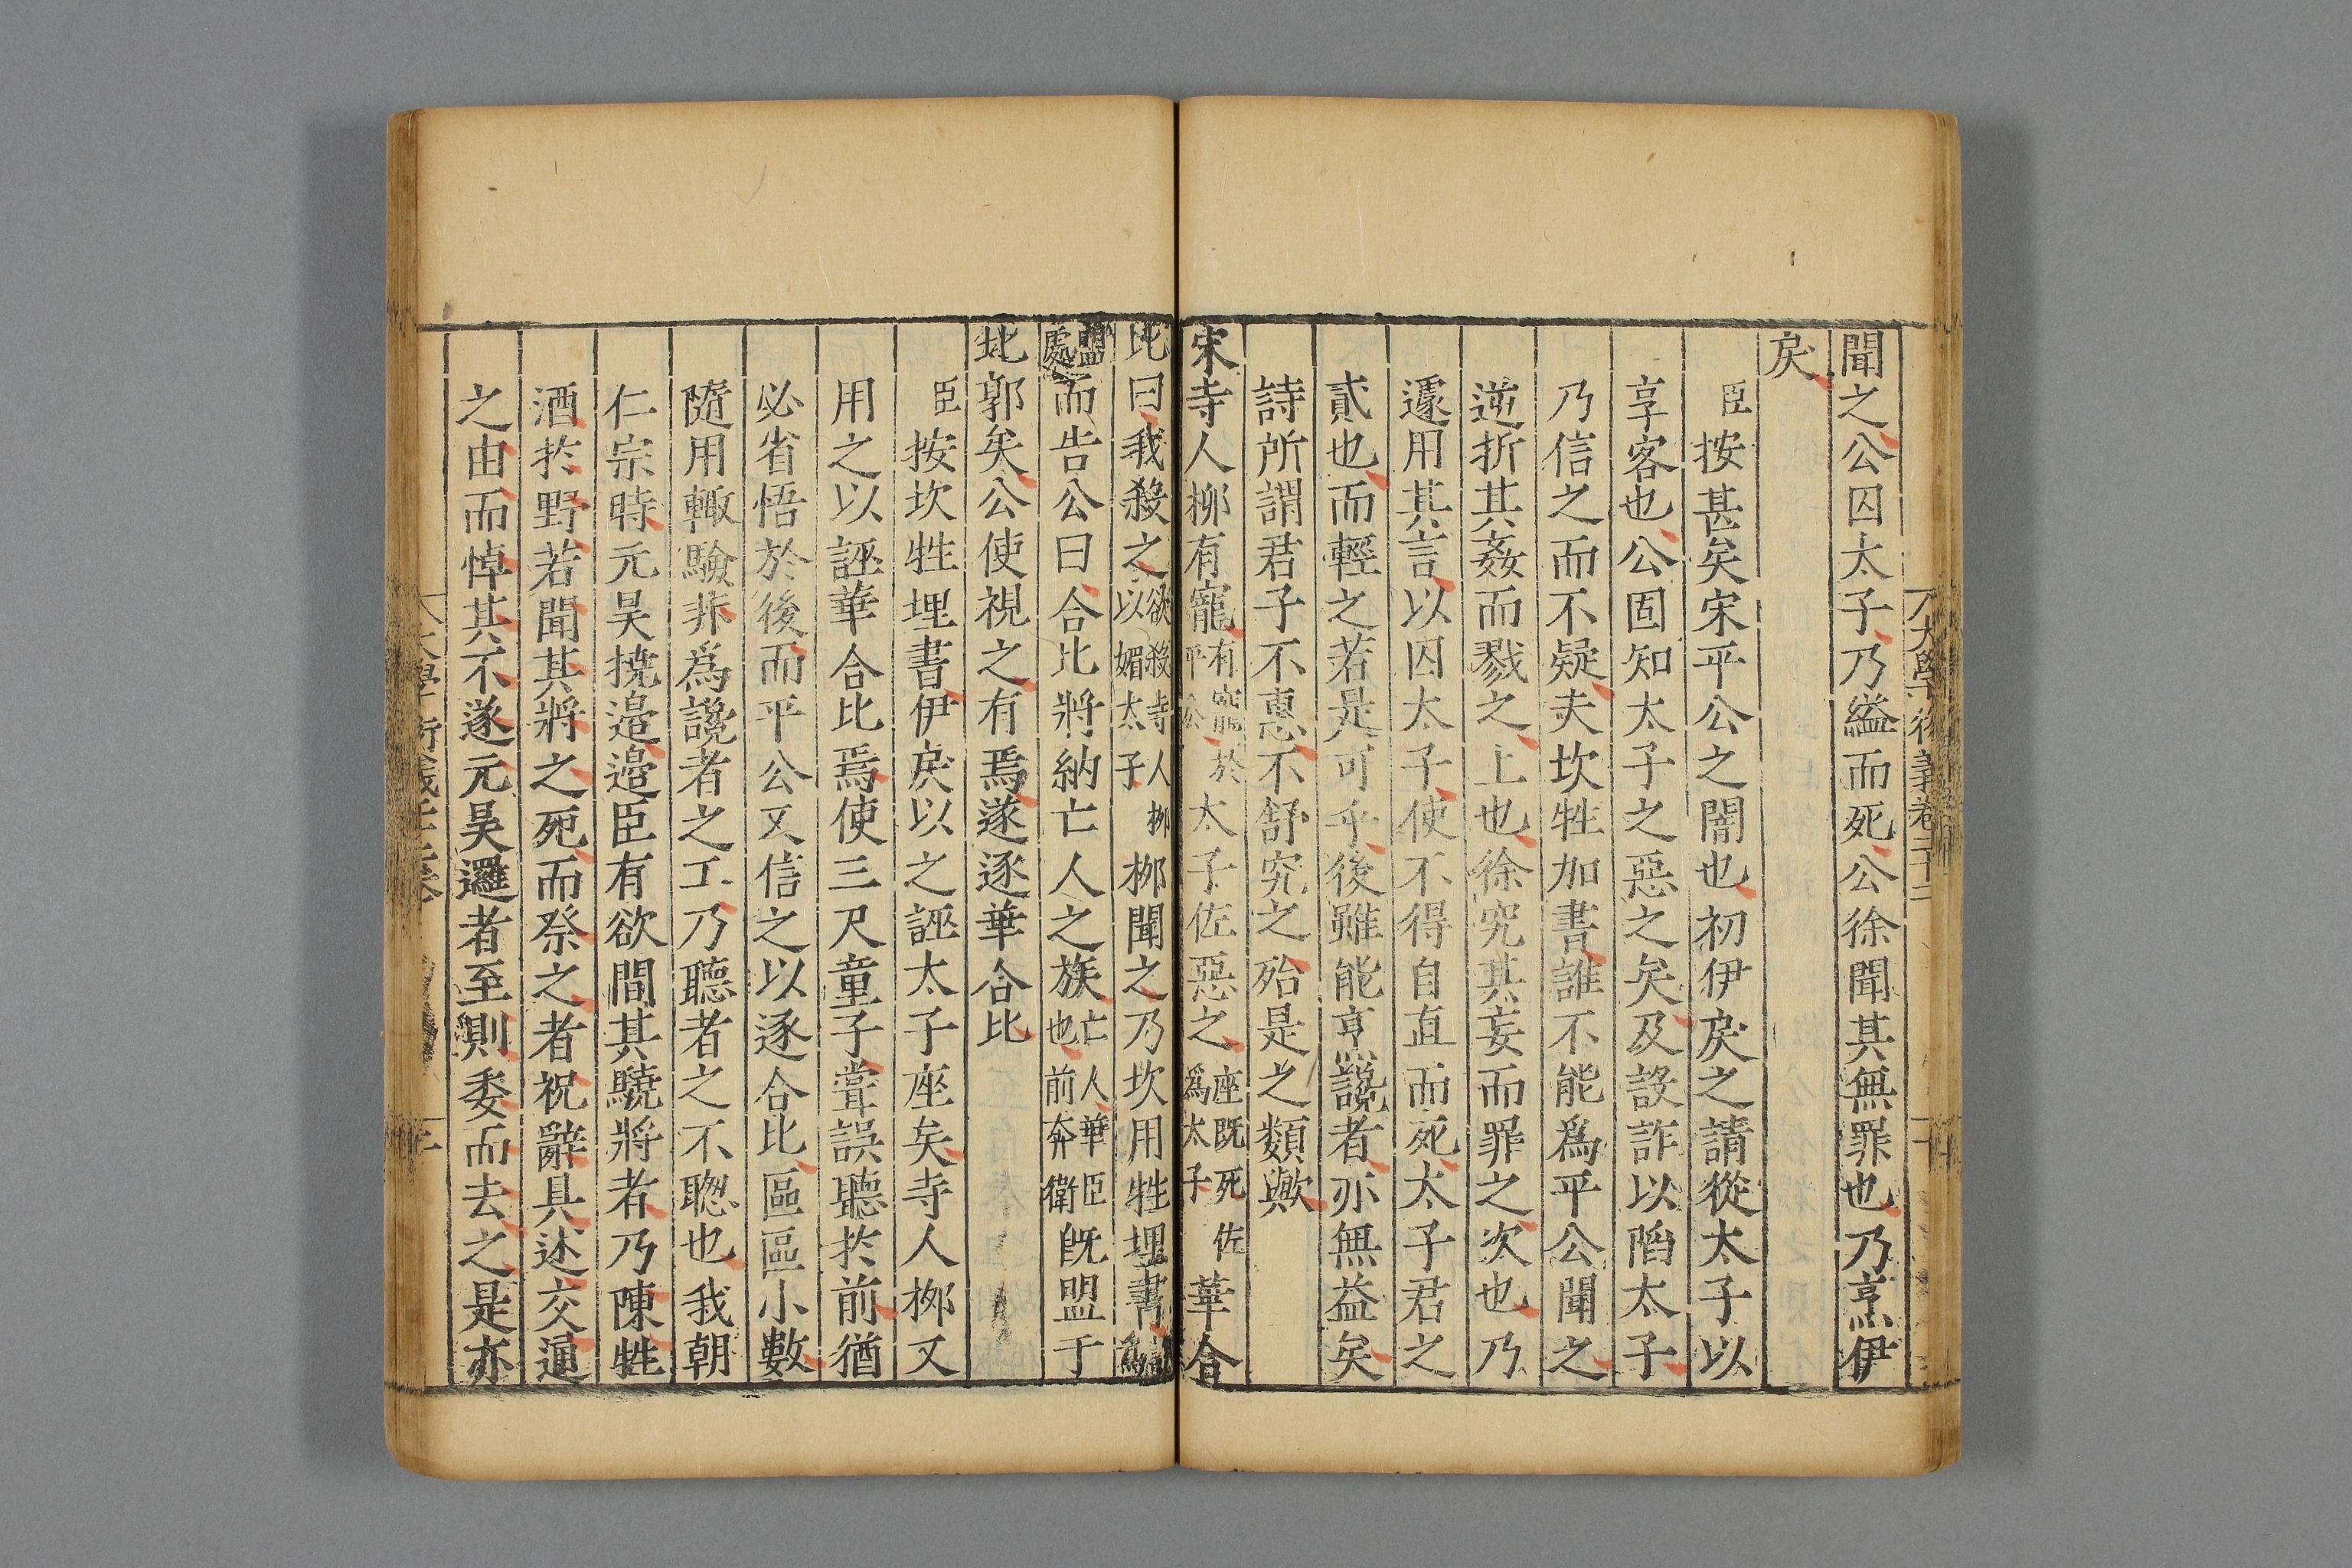 聞之公囚太子乃縊而死公徐聞其無罪也乃烹伊
戾
臣按甚矣宋平公之闇也初伊戾之請從太子以
享客也公固知太子之惡之矣及設詐以陷太子
乃信之而不疑夫坎牲加書誰不能為平公聞之
逆折其姦而戮之上也徐究其妄而罪之次也乃
遽用其言以囚太子使不得自直而死太子君之
貳也而輕之若是可乎後雖能烹讒者亦無益矣
詩所謂君子不惠不舒究之殆是之類歟
宋寺人栁有寵有寵於平公太子佐惡之座既死佐為太子華合
比曰我殺之欲殺寺人栁以媚太子栁聞之乃坎用牲埋書
而告公曰合比將納亡人之族亡人華臣也前奔衛旣盟于
北郭矣公使視之有焉遂逐華合比
臣按坎牲埋書伊戾以之誣太子座矣寺人栁又
用之以誣華合比焉使三尺童子嘗誤聽於前猶
必省悟於後而平公又信之以逐合比區區小數
隨用輙驗非為讒者之工乃聽者之不聦也我朝
仁宗時元昊撓邉邉臣有欲間其驍將者乃陳牲
酒於野若聞其將之死而祭之者祝辭具述交通
之由而悼其不遂元昊邏者至則委而去之是亦